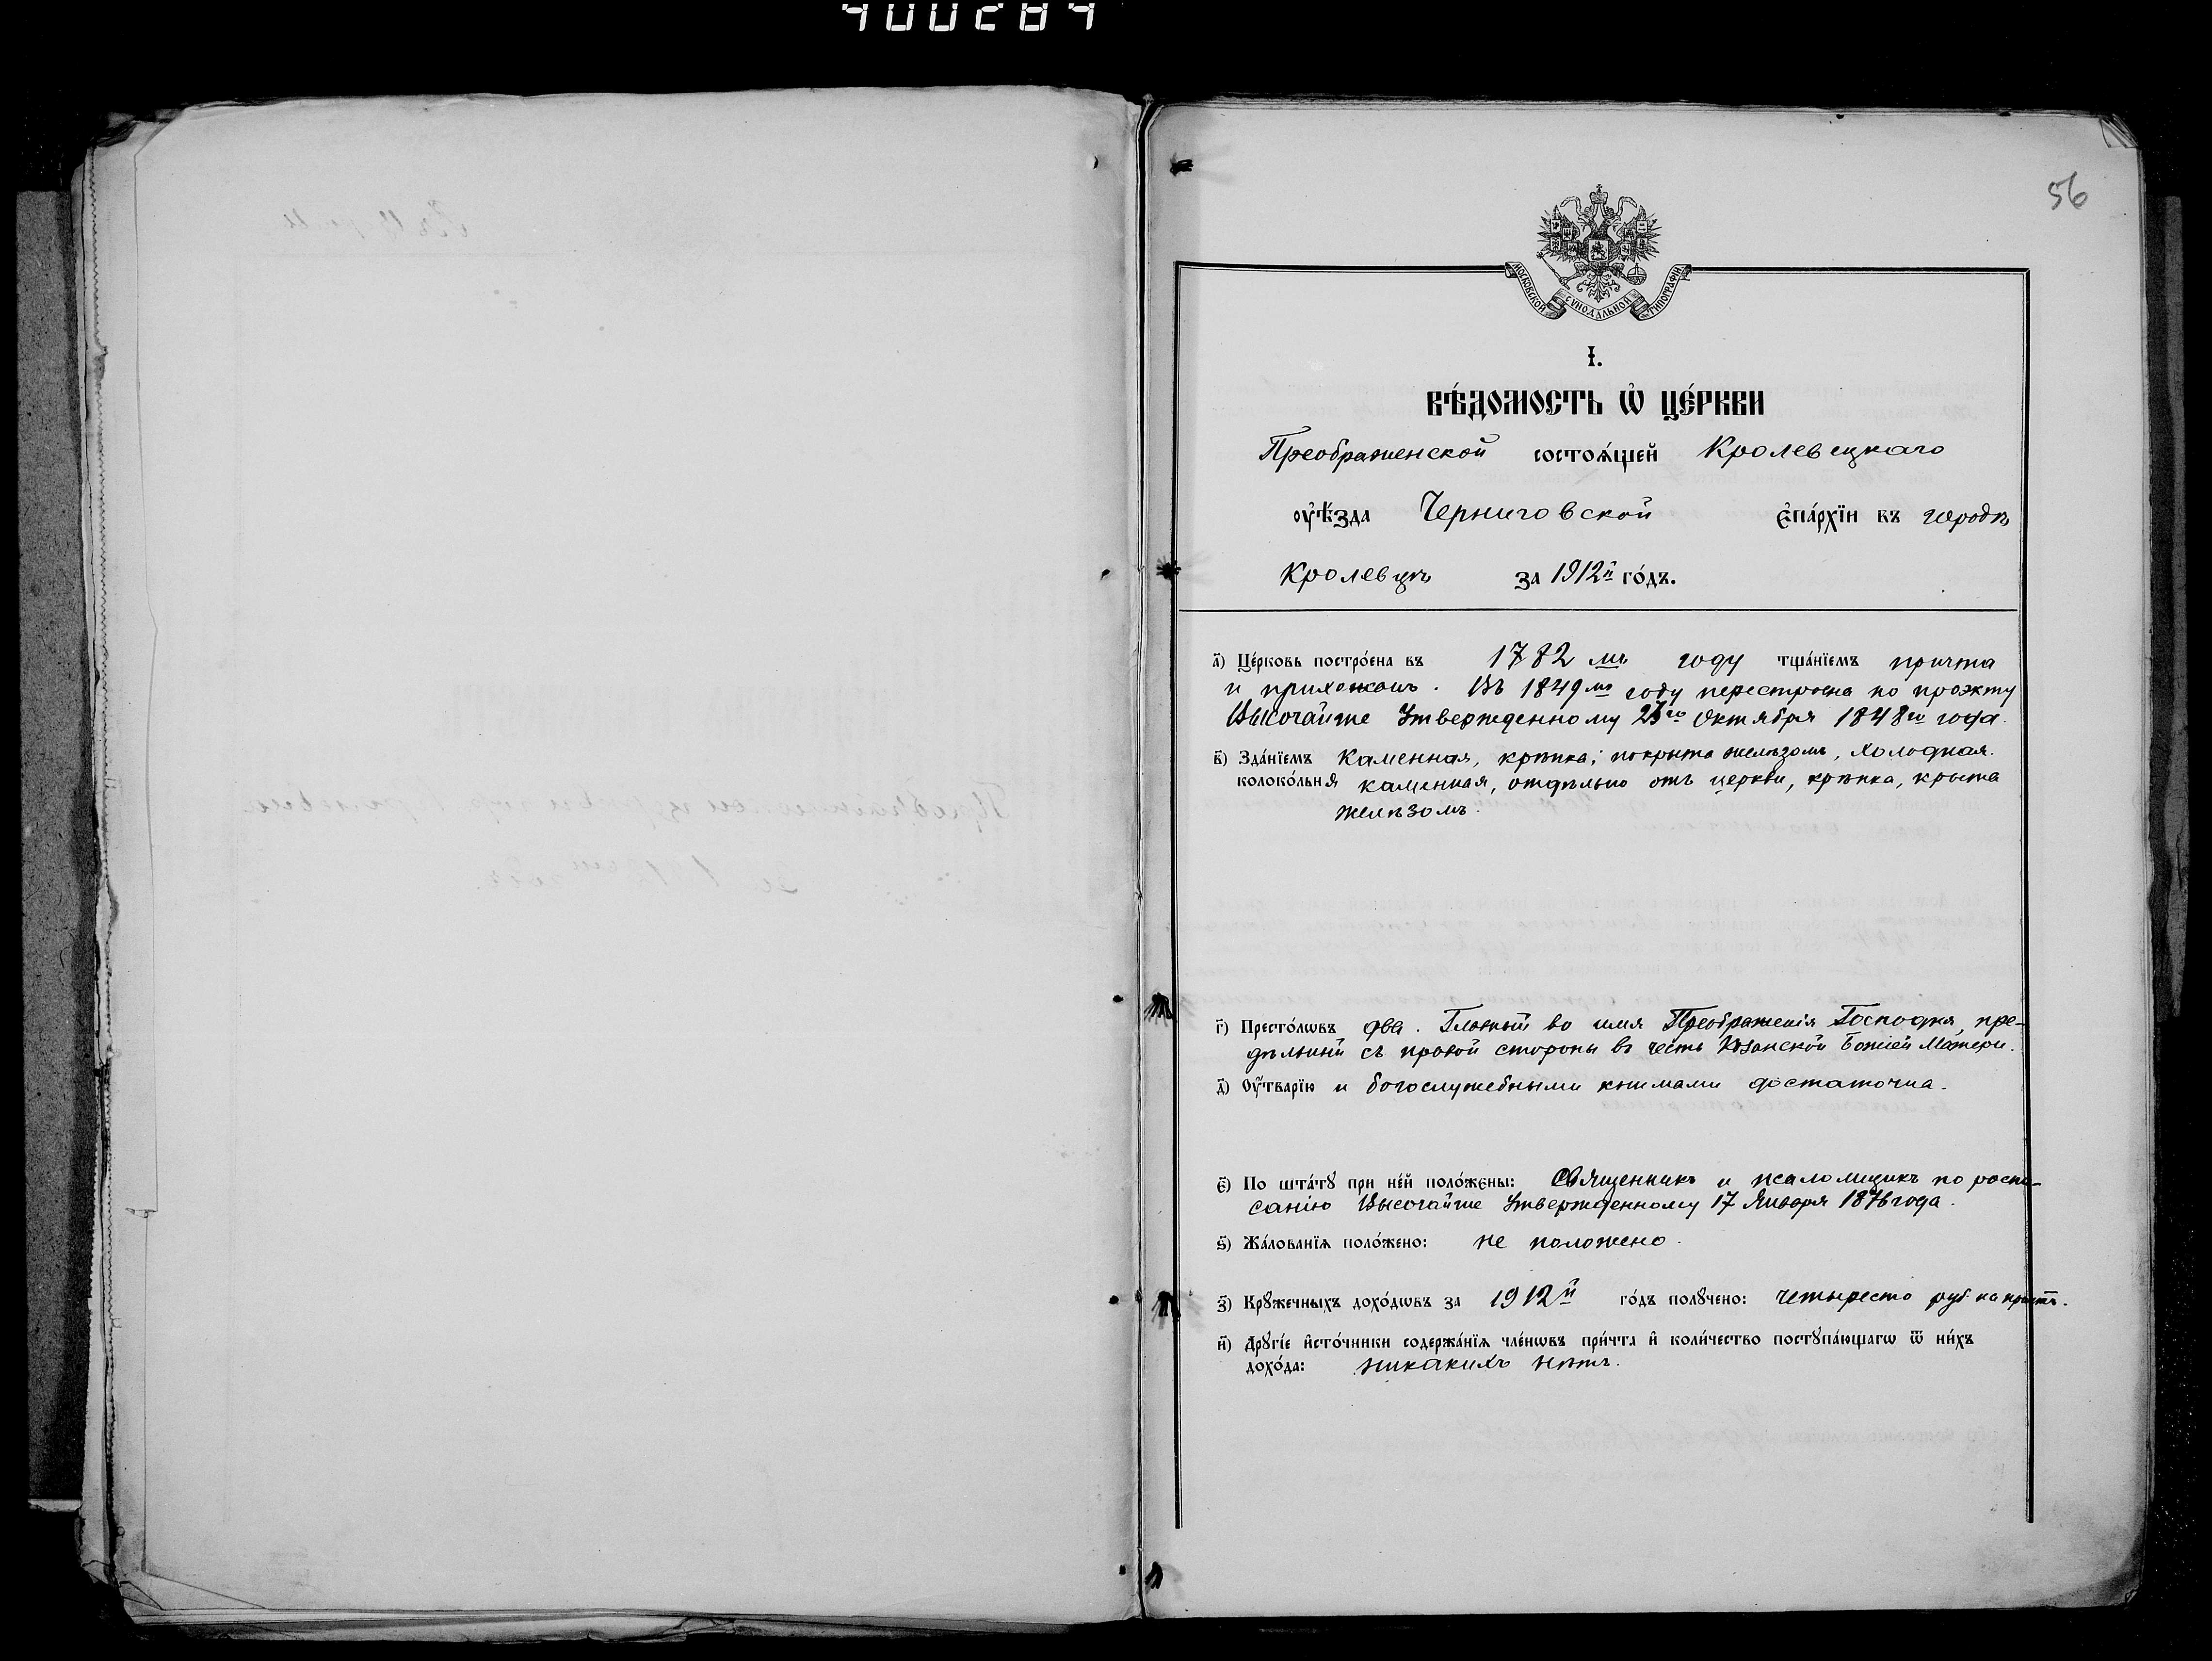 400284
56
МОСКОВСКОЙ СѴНОДАЛЬНОЙ ТИПОГРАФІИ
І.
ВѢ́ДОМОСТЬ Ѽ ЦЕ́РКВИ
Преображенской состоѧ́щей Кролевецкаго
оуѣ́зда Черниговской є҆па́рхїи въ городѣ
Кролевцѣ за 1912й го́дъ.
а҃) Це́рковь постро́ена въ 1782 мъ году тща́нїемъ причта
и прихожанъ. Въ 1849мъ году перестроена по проэкту
Высочайше Утвержденному 25го Октября 1848го года.
в҃) Зда́нїемъ Каменная, крѣпка; покрыта желѣзомъ, холодная.
колоко́льня каменная, отдѣльно отъ церкви, крѣпка, крыта
желѣзомъ.
г҃) Престо́лѡвъ два. Главный во имя Преображенія Господня, пре-
дѣльный съ правой стороны въ честь Казанской Божіей Матери.
д҃) Оу҆́тварїю и богослужебными книгами достаточна.
є҃) По шта́тꙋ при не́й поло́жены: Священникъ и псаломщикъ по роспи-
санію Высочайше Утвержденному 17 Января 1876 года.
ѕ҃) Жа́лованїѧ поло́жено: не положено.
з҃) Крꙋ́жечныхъ дохо́дѡвъ за 1912й го́дъ полꙋ́чено: четыреста руб. на причтъ.
и҃) Дрꙋгі́е и҆сто́чники содержа́нїѧ чле́нѡвъ при́чта и҆ коли́чество постꙋпа́ющагѡ ѿ ни́хъ
дохо́да: никакихъ нѣтъ.